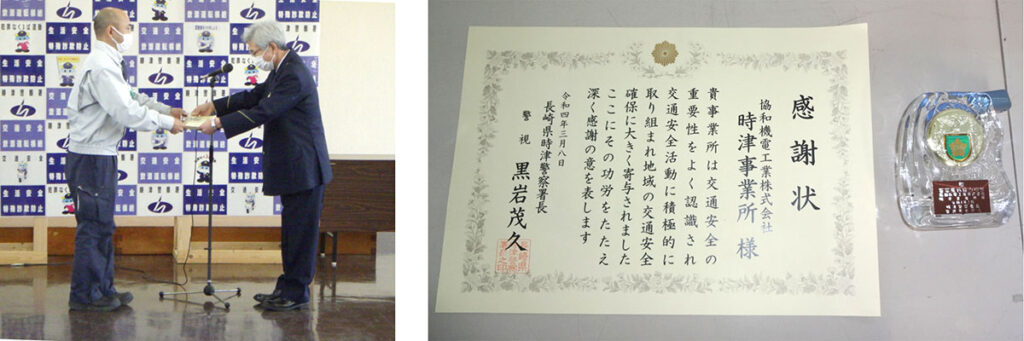 交通安全
生活安全
飲酒運転根絶
特殊詐欺防止
時津警察署
感謝状
協和機電工業株式会社
時津事業所 様
貴事業所は交通安全の
重要性をよく認識され
交通安全活動に積極的に
取り組まれ地域の交通安全
確保に大きく寄与されました
ここにその功労をたたえ
深く感謝の意を表します
令和四年三月八日
長崎県時津警察署長
警視 黒岩茂久